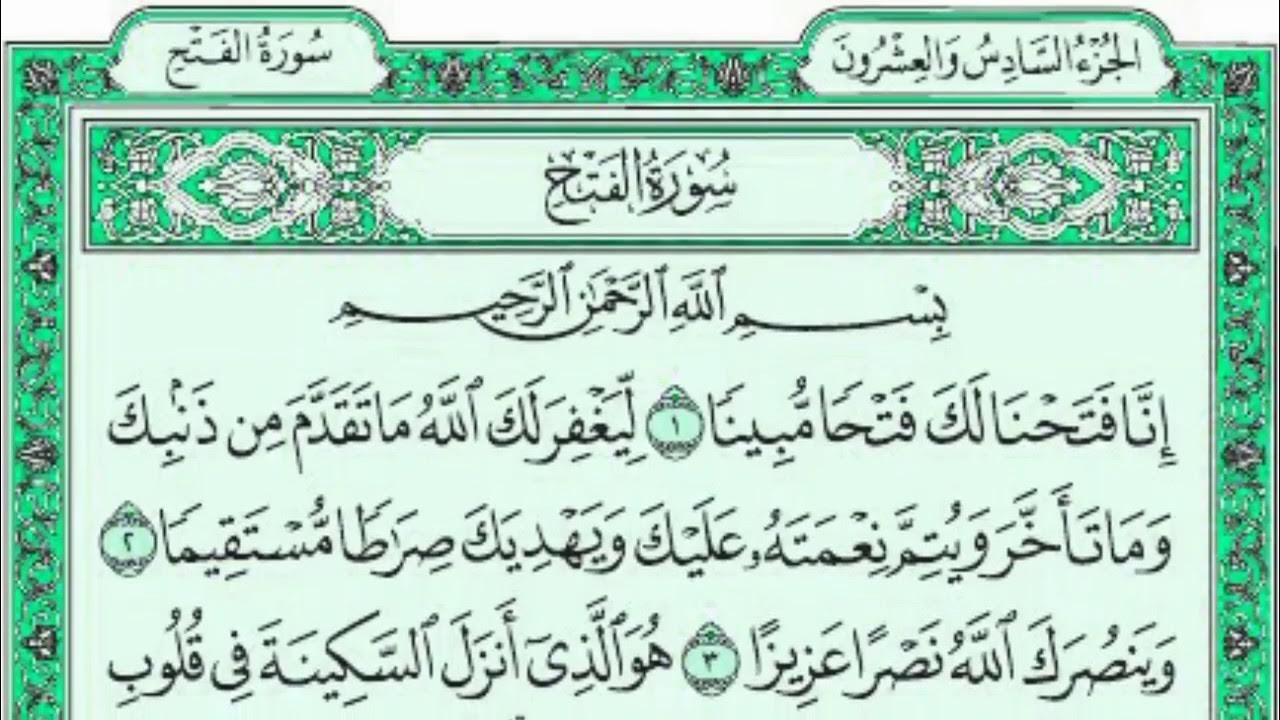 الجُزْءُ السَّادِسُ وَالعِشْرُونَ
سُورَةُ الفَتْحِ
سُورَةُ الفَتْحِ
بِسْمِ ٱللَّهِ ٱلرَّحْمَٰنِ ٱلرَّحِيمِ
إِنَّا فَتَحْنَا لَكَ فَتْحًا مُّبِينًا ١ لِّيَغْفِرَ لَكَ ٱللَّهُ مَا تَقَدَّمَ مِن ذَنۢبِكَ
وَمَا تَأَخَّرَ وَيُتِمَّ نِعْمَتَهُۥ عَلَيْكَ وَيَهْدِيَكَ صِرَٰطًا مُّسْتَقِيمًا ٢
وَيَنصُرَكَ ٱللَّهُ نَصْرًا عَزِيزًا ٣ هُوَ ٱلَّذِىٓ أَنزَلَ ٱلسَّكِينَةَ فِى قُلُوبِ